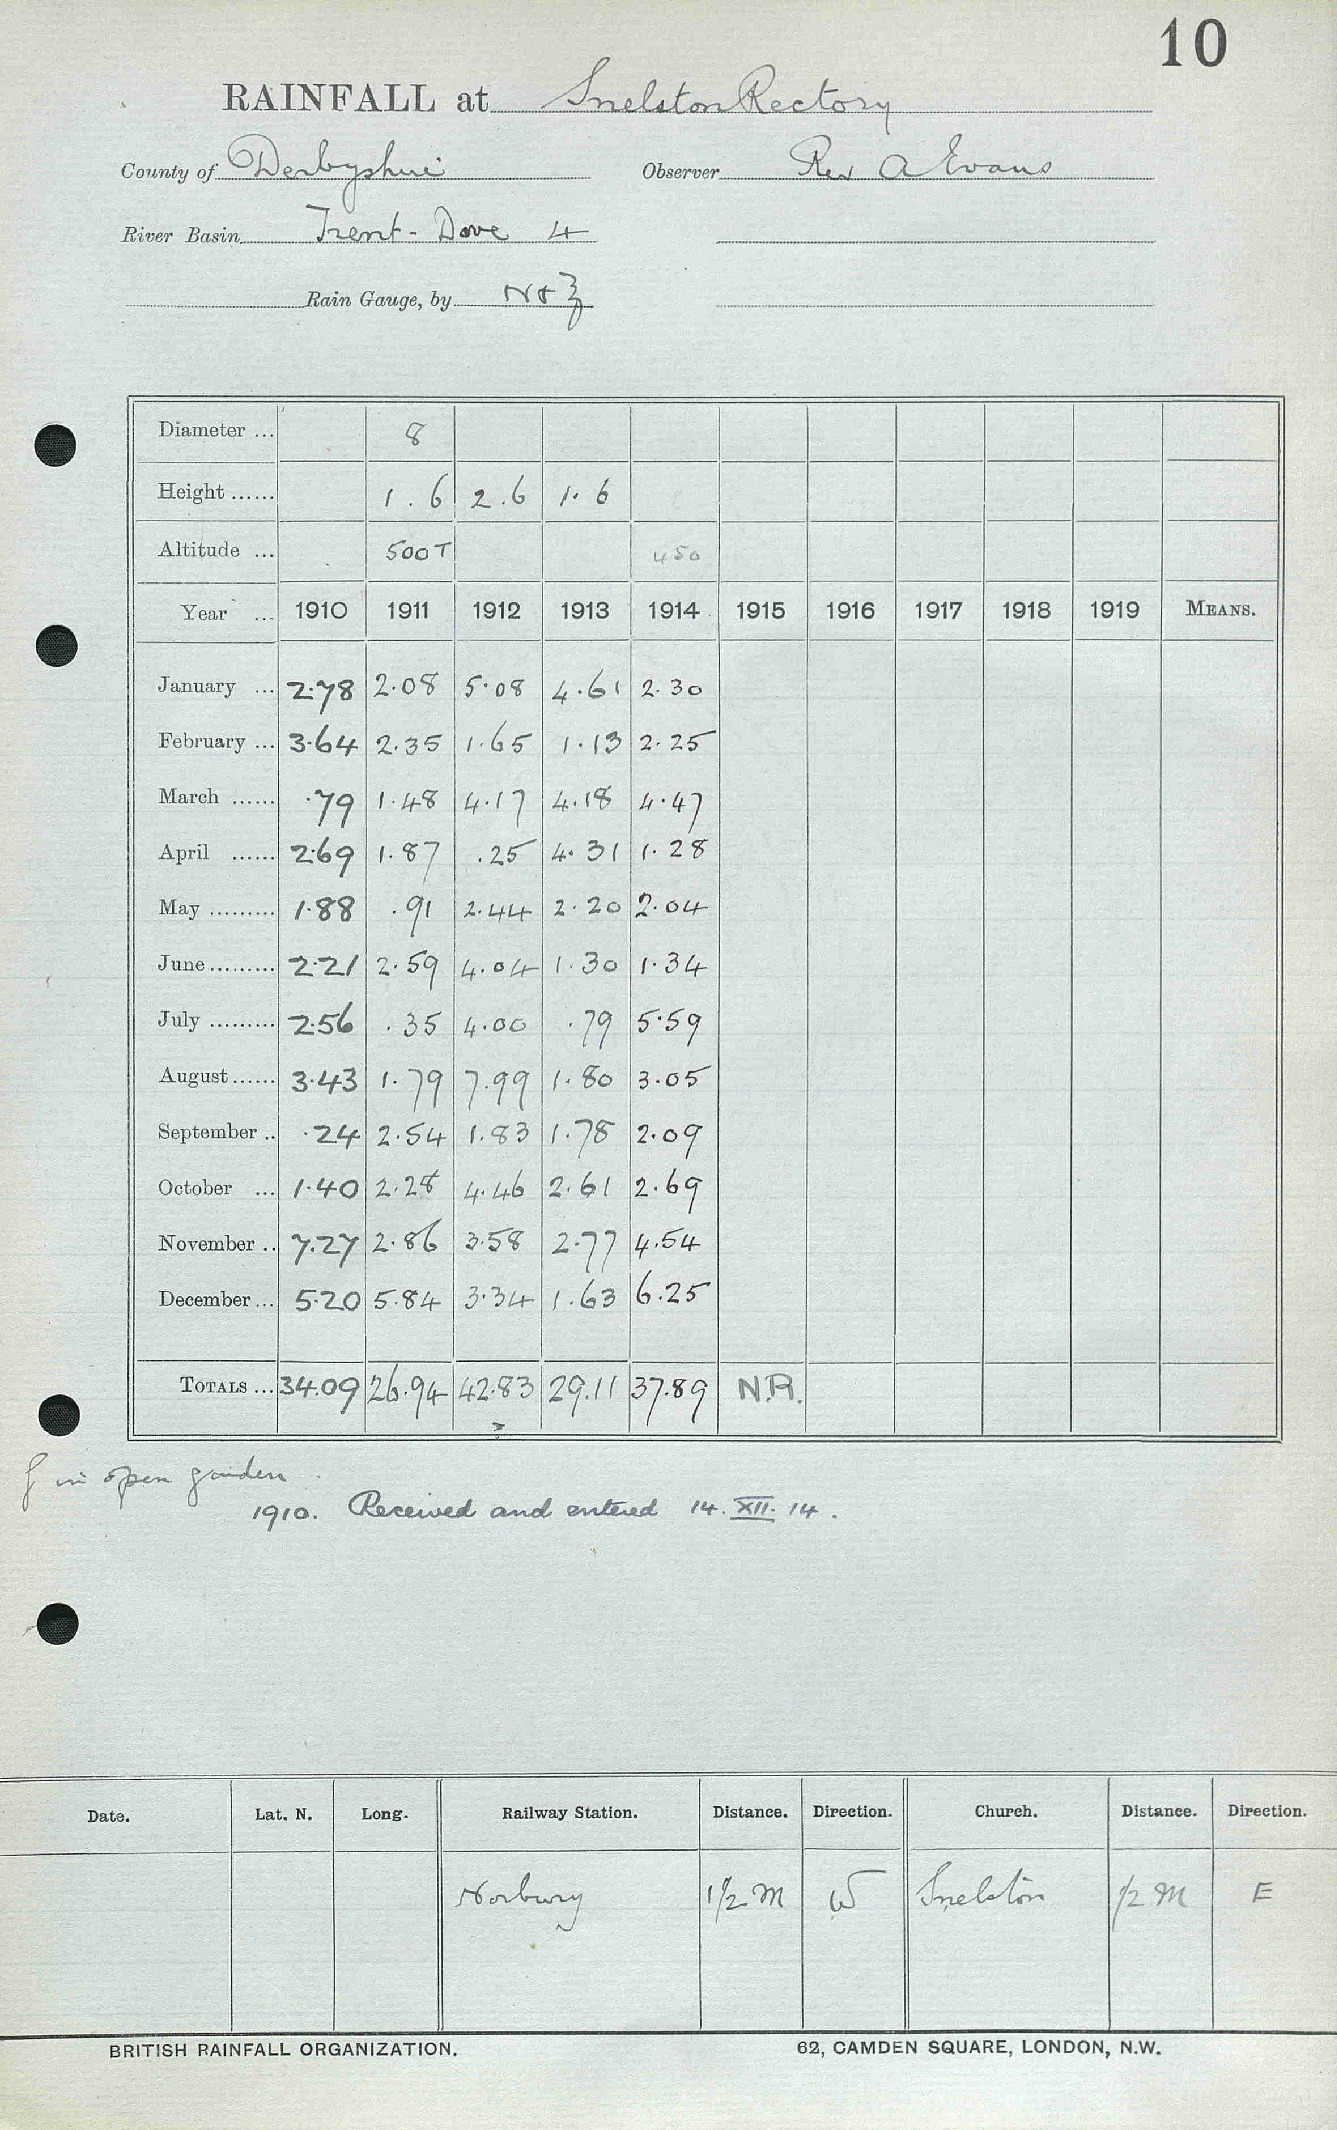 10
RAINFALL at Snelston Rectory
County of Derbyshire Observer Rev A Evans
River Basin Trent - Dove 4
Rain Gauge, by N & Z
Diameter ... 8
Height ...... 1.6 2.6 1.6
Altitude ... 500T 450
Year ... 1910 1911 1912 1913 1914 1915 1916 1917 1918 1919 MEANS.
January ... 2.78 2.08 5.08 4.61 2.30
February ... 3.64 2.35 1.65 1.13 2.25
March ...... .79 1.48 4.17 4.18 4.47
April ...... 2.69 1.87 .25 4.31 1.28
May ......... 1.88 .91 2.44 2.20 2.04
June ......... 2.21 2.59 4.04 1.30 1.34
July ......... 2.56 .35 4.00 .79 5.59
August ...... 3.43 1.79 7.99 1.80 3.05
September .. .24 2.54 1.83 1.78 2.09
October ... 1.40 2.28 4.46 2.61 2.69
November .. 7.27 2.86 3.58 2.77 4.54
December ... 5.20 5.84 3.34 1.63 6.25
TOTALS ... 34.09 26.94 42.83 29.11 37.89 N.R.
in open garden
1910. Received and entered 14.XII.14.
Date. Lat. N. Long. Railway Station. Distance. Direction. Church. Distance. Direction.
Norbury 1 1/2 M W Snelston 1/2 M E
BRITISH RAINFALL ORGANIZATION. 62, CAMDEN SQUARE, LONDON, N.W.